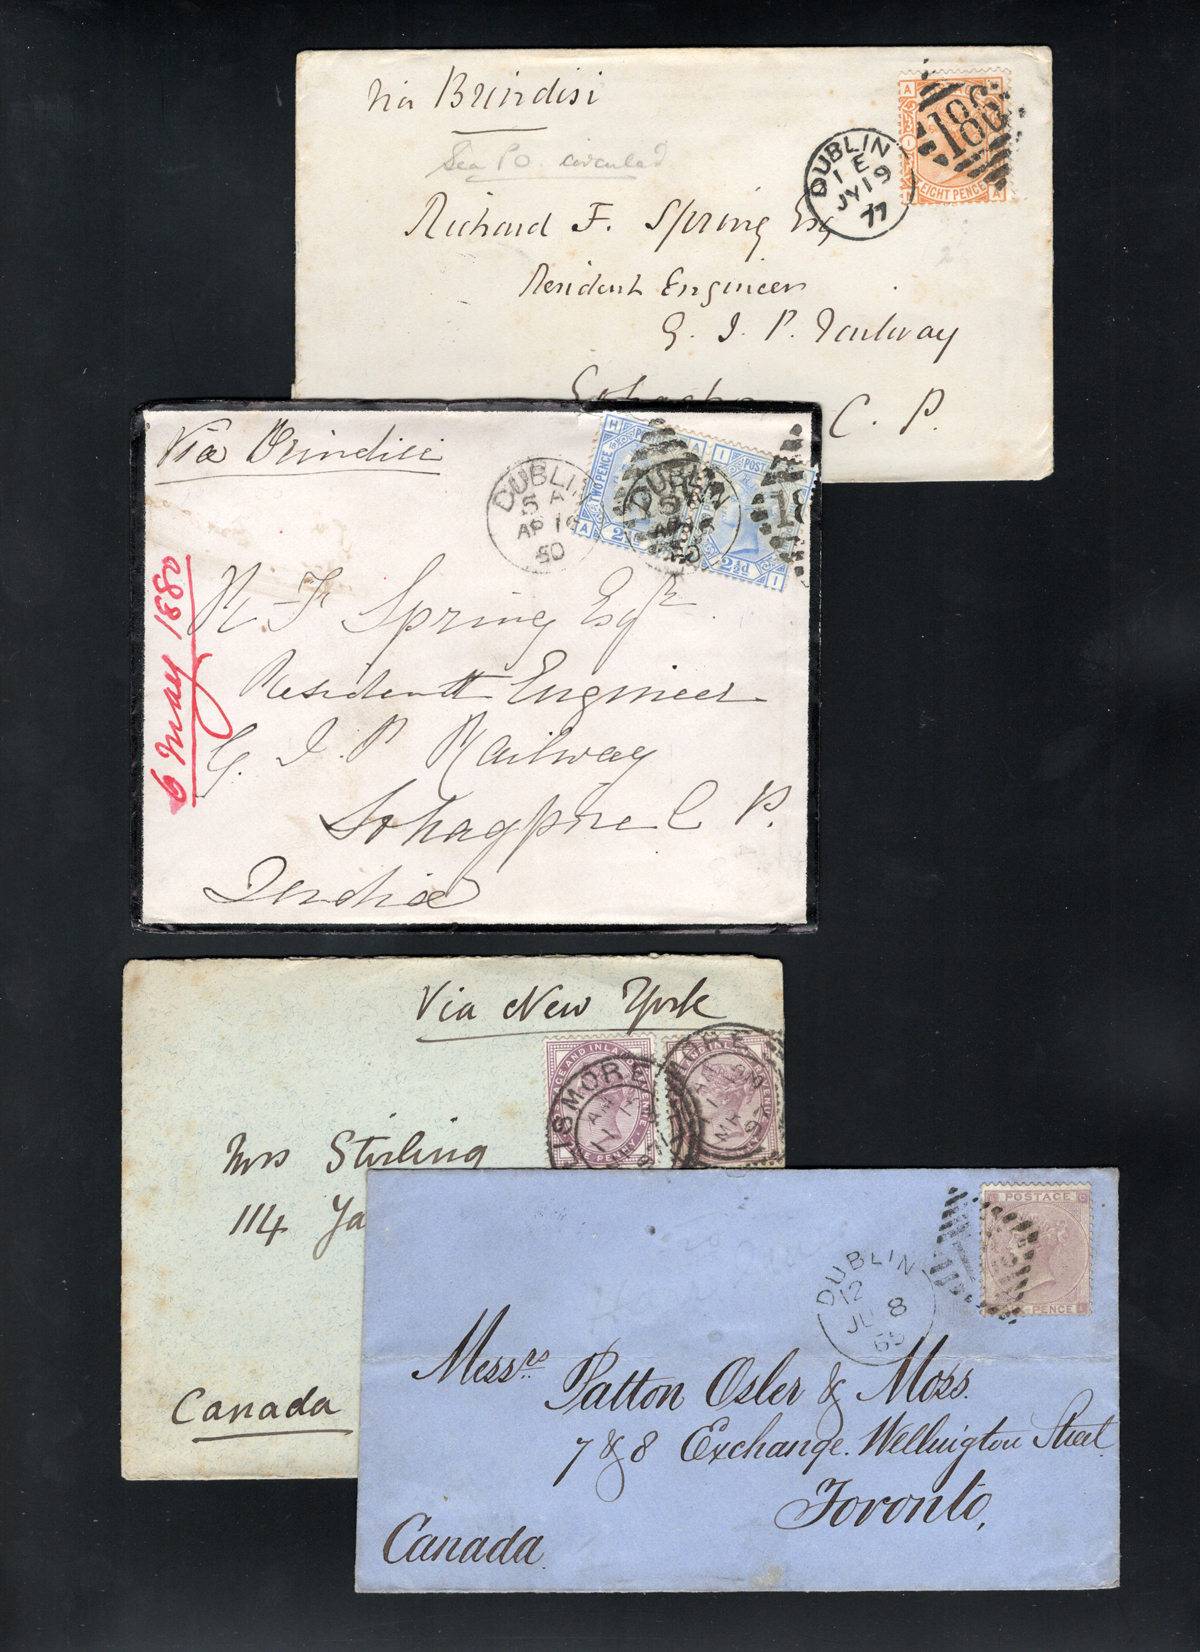 Via Brindisi
Sea P.O.
Richard F. Spring Esq
Resident Engineer
G. I. P. Railway
C. P.
DUBLIN
1 E
JY 19
77
186
EIGHT PENCE
A
A
Via Brindisi
DUBLIN
5 A
AP 16
80
DUBLIN
TWO PENCE
H
A
I
POST
A
2½d
I
18
6 May 1880
R F Spring Esqr
Resident Engineer
G. I. P Railway
Sohagpore C P.
India
Via New York
LISMORE
AM
11
MR
PENNY
Mrs Stirling
114 Ya
Canada
POSTAGE
PENCE
DUBLIN
12
JU 8
65
Messrs Patton Osler & Moss.
7 & 8 Exchange. Wellington Street
Toronto,
Canada